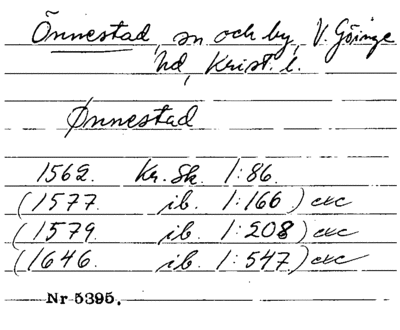 Önnestad, sn och by, V. Göinge
hd, Krist. l.
Ønnestad
1562. Kr. Sk. 1:86.
(1577. ib. 1:166) exc
(1579. ib. 1:208) exc
(1646. ib. 1:547) exc
Nr 5395.